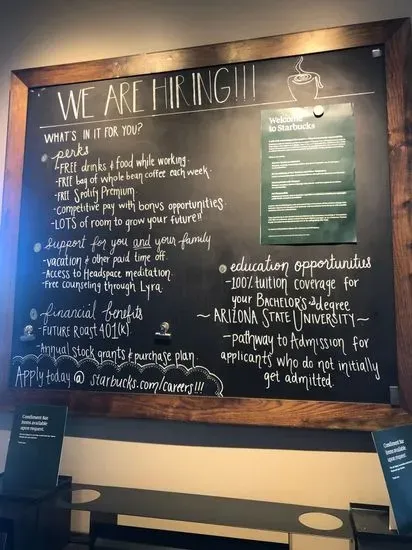 WE ARE HIRING!!!
WHAT'S IN IT FOR YOU?
perks
-FREE drinks & food while working.
-FREE bag of whole bean coffee each week.
-FREE Spotify Premium.
-Competitive pay with bonus opportunities.
-LOTS of room to grow your future!!
Support for you and your family
-vacation & other paid time off.
-Access to Headspace meditation.
-Free counseling through Lyra.
financial benefits
-FUTURE ROAST 401(k).
-Annual stock grants & purchase plan.
Apply today @ starbucks.com/careers!!!
Welcome
to Starbucks
education opportunities
-100% tuition coverage for
your BACHELOR'S degree
~ARIZONA STATE UNIVERSITY~
-pathway to Admission for
applicants who do not initially
get admitted.
Condiment Bar
items available
upon request.
Condiment Bar
items available
upon request.